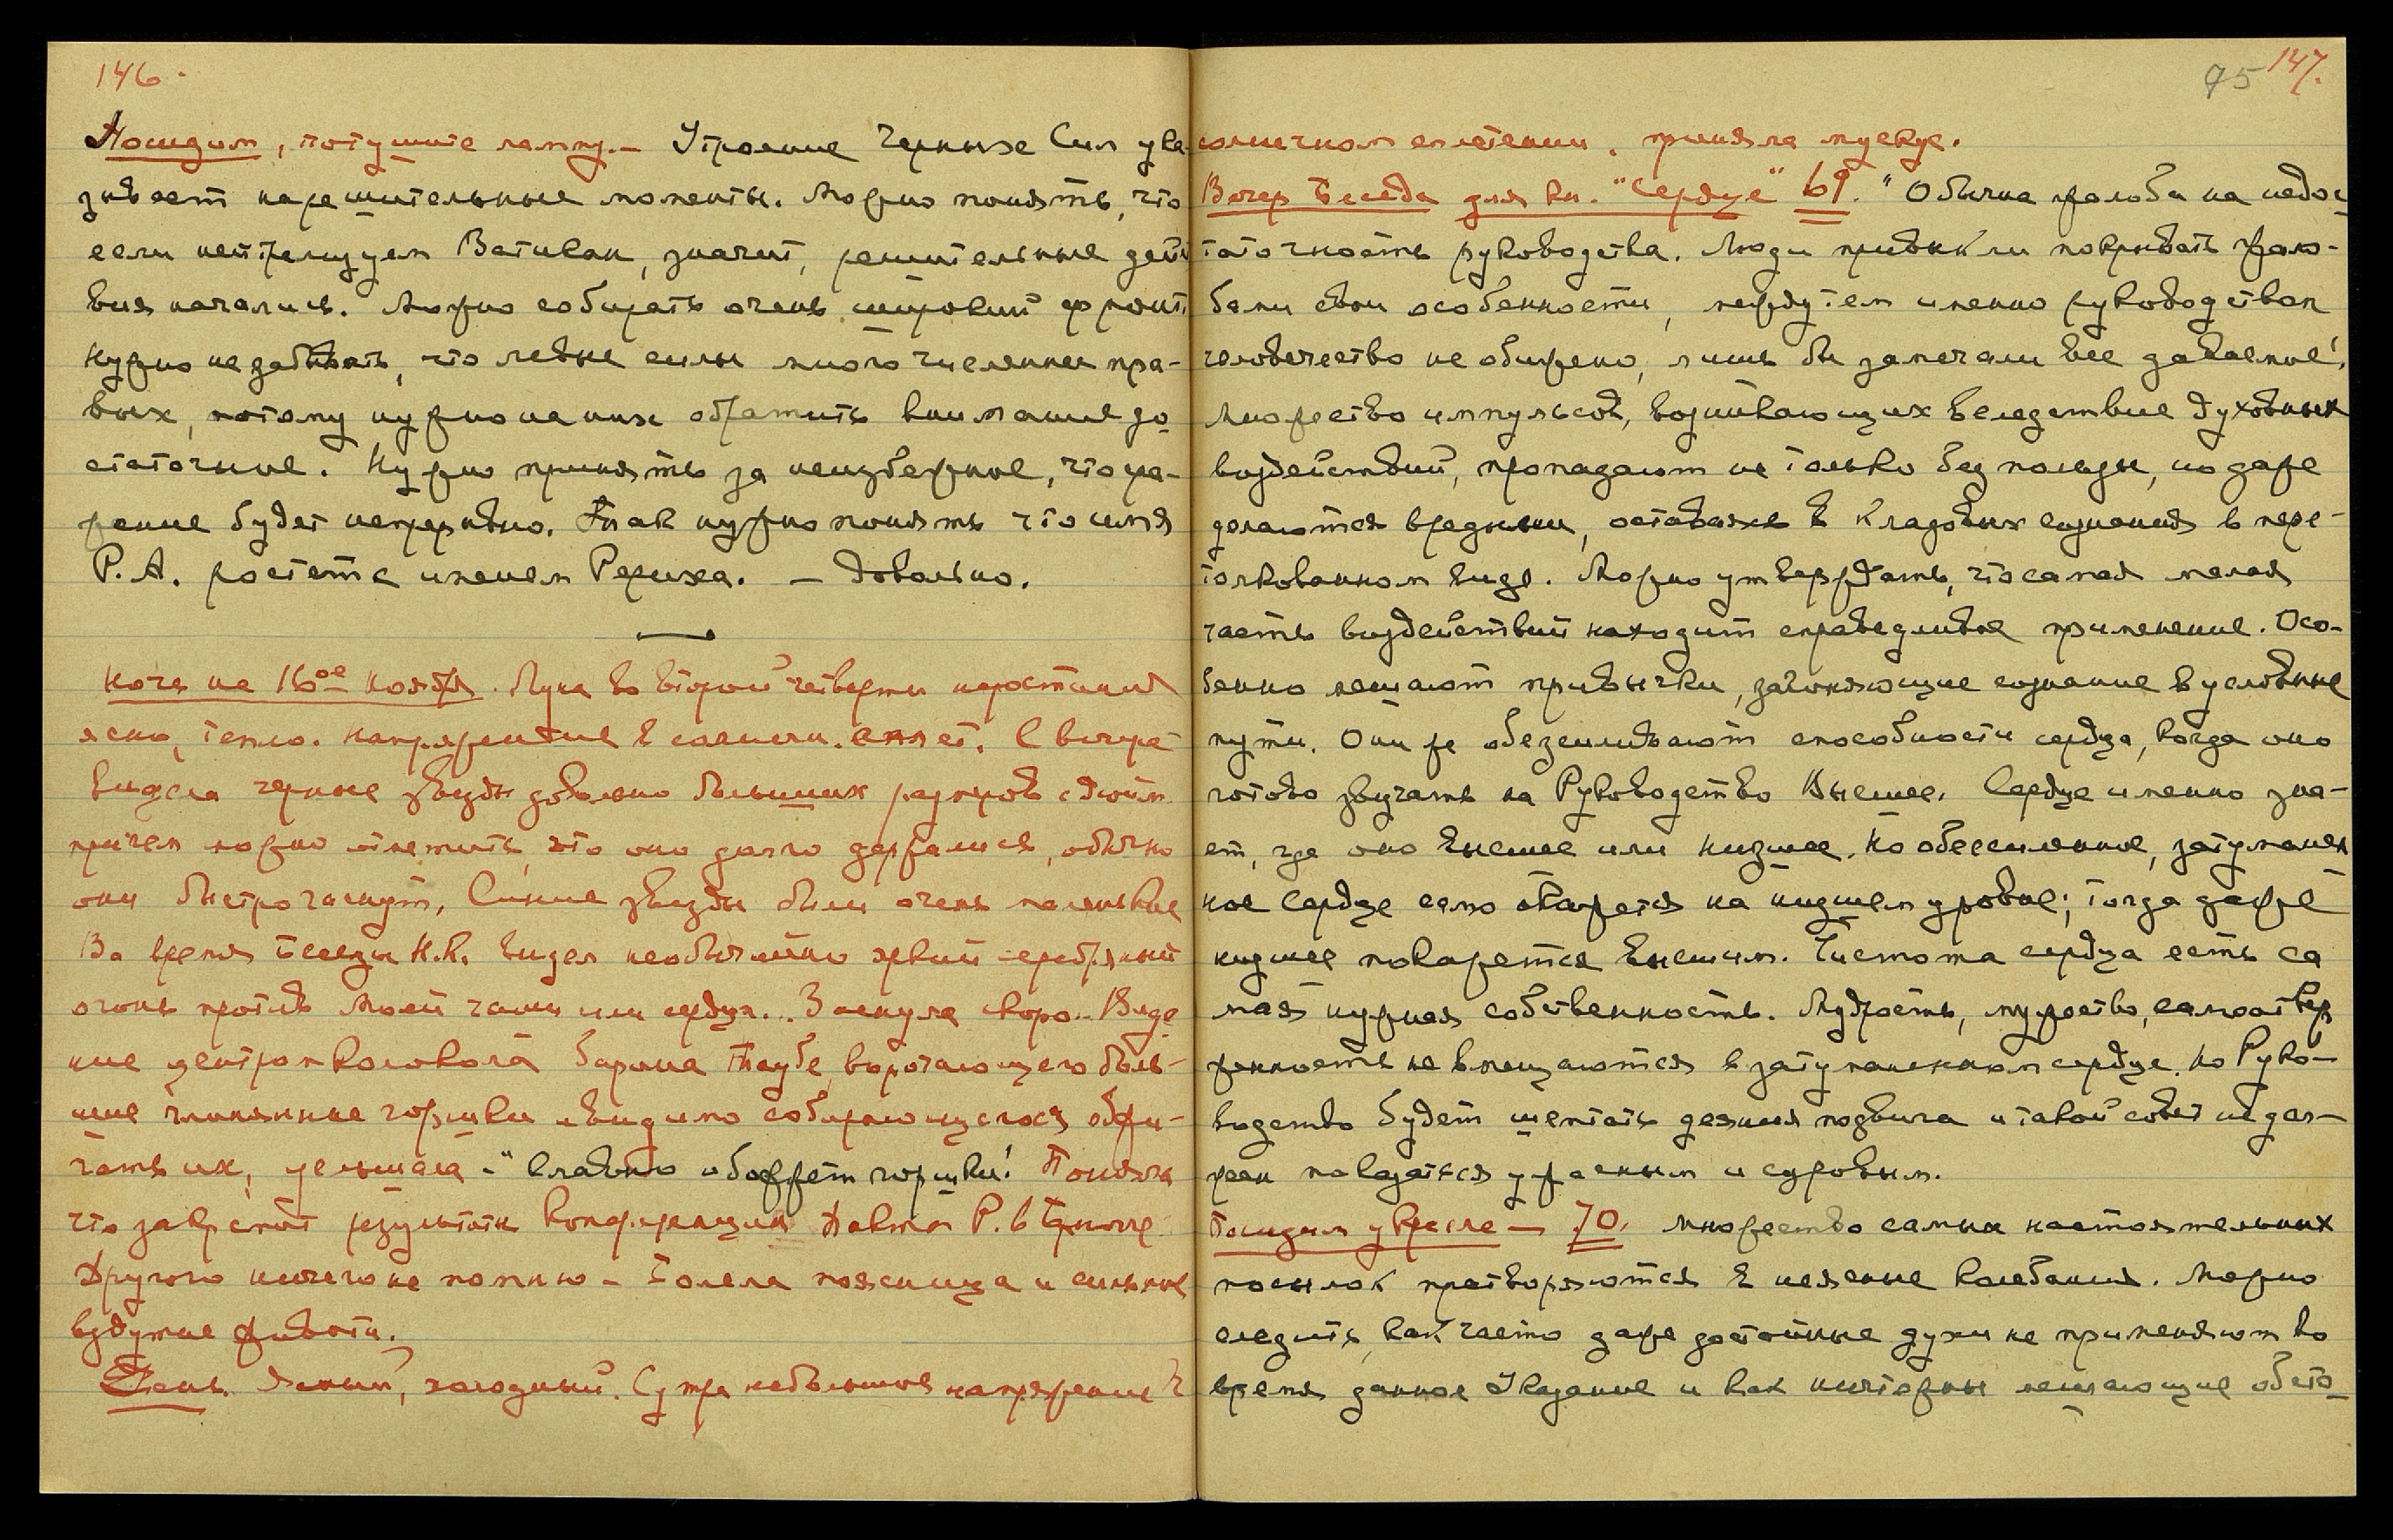 146.
Посидим, потушите лампу. — Утроение черных Сил ука-
зывает на решительные моменты. Можно понять, что
если негодуем Ватикан, значит, решительные дейст
вия начались. Можно собирать очень широкий фронт.
Нужно не забывать, что левые силы многочисленнее пра-
вых, потому нужно на них обратить внимание до
статочное. Нужно принять за неизбежное, что ра-
жение будет непрерывно. Так нужно понять что имя
Р. А. растет с именем Рериха. — Довольно.
Ночь на 16ое ноября. Луна во второй четверти нарастания
ясно, тепло. Напряжение в солнечн. сплет. С вечера
видела черные звезды довольно больших размеров с дюйм
причем можно отметить, что они долго держались, обычно
они быстро гаснут. Синие звезды были очень маленькие
Во время Беседы Н.К. видел необычайно яркий серебряный
огонь против моей чаши или сердца... Заснула скоро. Виде
ние центром колокола барона Таубе, ворочающего боль-
шие глиняные горшки и видимо собирающегося обжи-
гать их, услышала — "Славно обожжет горшки!" Поняла
что закрепит результаты конференции Пакта Р. в Брюгге
Другого ничего не помню — Болела поясница и сильное
вздутие живота.
День. Ясный, холодный. С утра небольшое напряжение в
95 147.
солнечном сплетении, приняла мускус.
Вечер Беседа для кн. "Сердце" 69. "Обычна жалоба на недос
таточность руководства. Люди привыкли покрывать жало-
бами свои особенности, между тем именно руководством
человечество не обижено, лишь бы замечали все даваемое!
Множество импульсов, возникающих вследствие духовных
воздействий, пропадают не только без пользы, но даже
делаются вредными, оставаясь в кладовых сознания в пере-
толкованном виде. Можно утверждать, что самая малая
часть воздействий находит справедливое применение. Осо-
бенно мешают привычки, загоняющие сознание в условные
пути. Они же обезсиливают способности сердца, когда оно
готово звучать на Руководство Высшее. Сердце именно зна-
ет, где оно высшее или низшее. Но обессиленное, затуманен
ное сердце само окажется на низшем уровне; тогда даже
низшее покажется высшим. Чистота сердца есть са
мая нужная собственность. Мудрость, мужество, самоотвер
женность не вмещаются в затуманенном сердце. Но Руко-
водство будет шептать деяния подвига и такой совет не дол-
жен показаться ужасным и суровым.
Посидим у кресла — 70. Множество самых настоятельных
посылок претворяются в неясные колебания. Можно
следить, как часто даже достойные духи не применяют во
время данное Указание и как ничтожны мешающие обсто